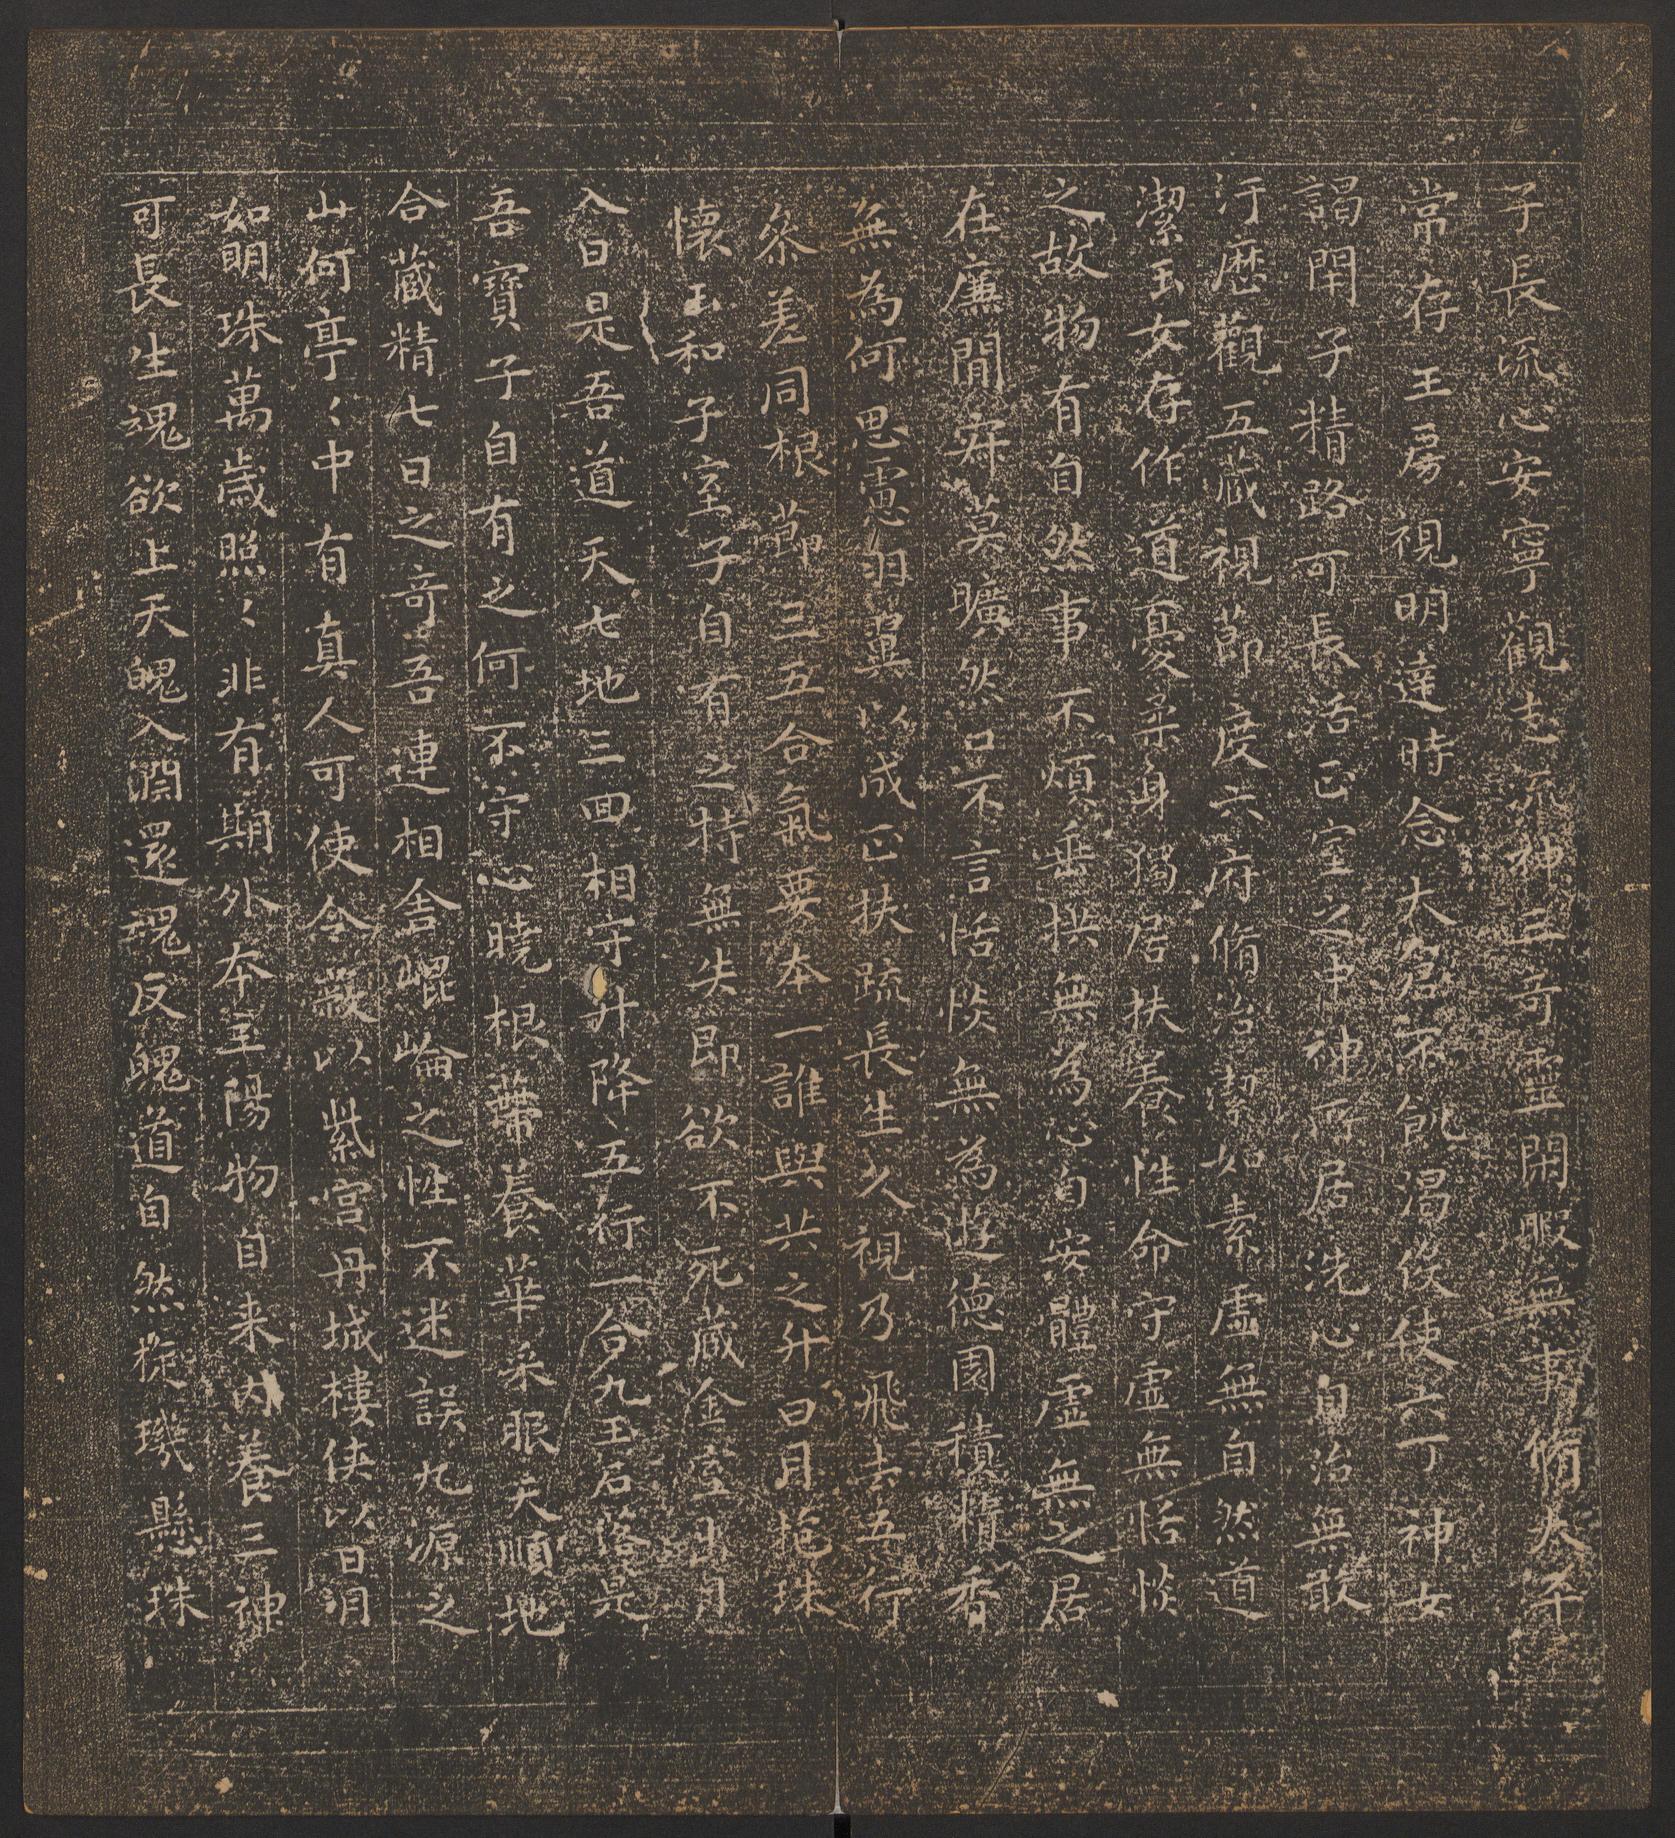 子長流心安寧觀志流神三奇靈閑暇無事脩太平
常存玉房視明達時念大倉不飢渴役使六丁神女
謁閇子精路可長活正室之中神所居洗心自治無敢
汙歷觀五藏視節度六府脩治潔如素虛無自然道
潔玉女存作道憂柔身獨居扶養性命守虛無恬惔
之故物有自然事不煩垂拱無為心自安體虛無之居
在廉閒寂莫曠然口不言恬惔無為遊德園積精香
無為何思慮羽翼以成正扶疏長生久視乃飛去五行
參差同根節三五合氣要本一誰與共之升日月抱珠
懷玉和子室子自有之持無失即欲不死藏金室出月
入日是吾道天七地三回相守升降五行一合九玉石落是
吾寶子自有之何不守心曉根蔕養華采服天順地
合藏精七日之奇吾連相舍崐崘之性不迷誤九源之
山何亭〻中有真人可使令蔽以紫宮丹城樓俠以日月
如明珠萬歲照〻非有期外本三陽物自来内養三神
可長生魂欲上天魄入淵還魂反魄道自然琁璣懸珠